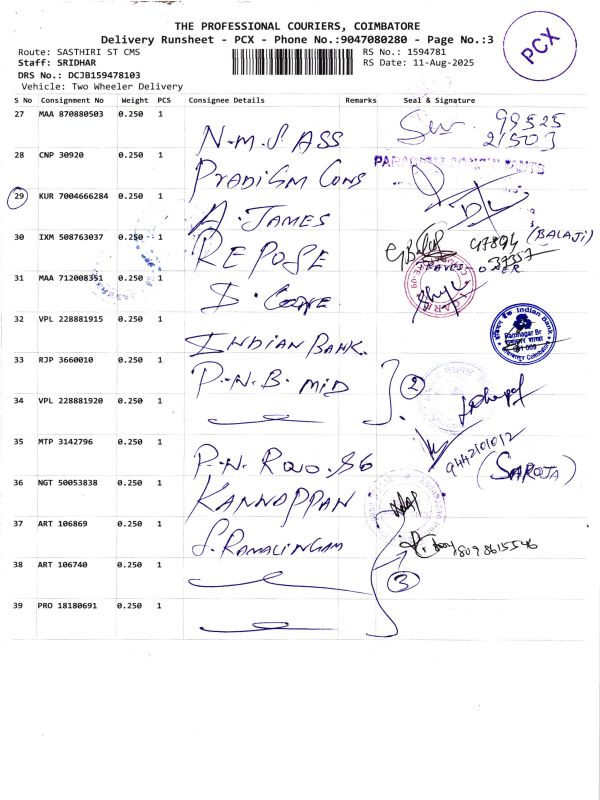 THE PROFESSIONAL COURIERS, COIMBATORE
Delivery Runsheet - PCX - Phone No.:9047080280 - Page No.:3
PCX
Route: SASTHIRI ST CMS
RS No.: 1594781
Staff: SRIDHAR
RS Date: 11-Aug-2025
DRS No.: DCJB159478103
Vehicle: Two Wheeler Delivery
S No Consignment No Weight PCS Consignee Details Remarks Seal & Signature
27 MAA 870880503 0.250 1
N.M.S ASS
28 CNP 30920 0.250 1
PradiGm Cons
29 KUR 7004666284 0.250 1
A. JAMES
30 IXM 508763037 0.250 1
REPOSE
(BALAJI)
31 MAA 712008351 0.250 1
32 VPL 228881915 0.250 1
INDIAN BANK.
Indian Bank
Ramnagar Br
33 RJP 3660010 0.250 1
P.N.B. MID
2
34 VPL 228881920 0.250 1
9442101012
35 MTP 3142796 0.250 1
(SAROJA)
36 NGT 50053838 0.250 1
KANNOPPAN
37 ART 106869 0.250 1
S. RAMALINGAM
38 ART 106740 0.250 1
3
39 PRO 18180691 0.250 1